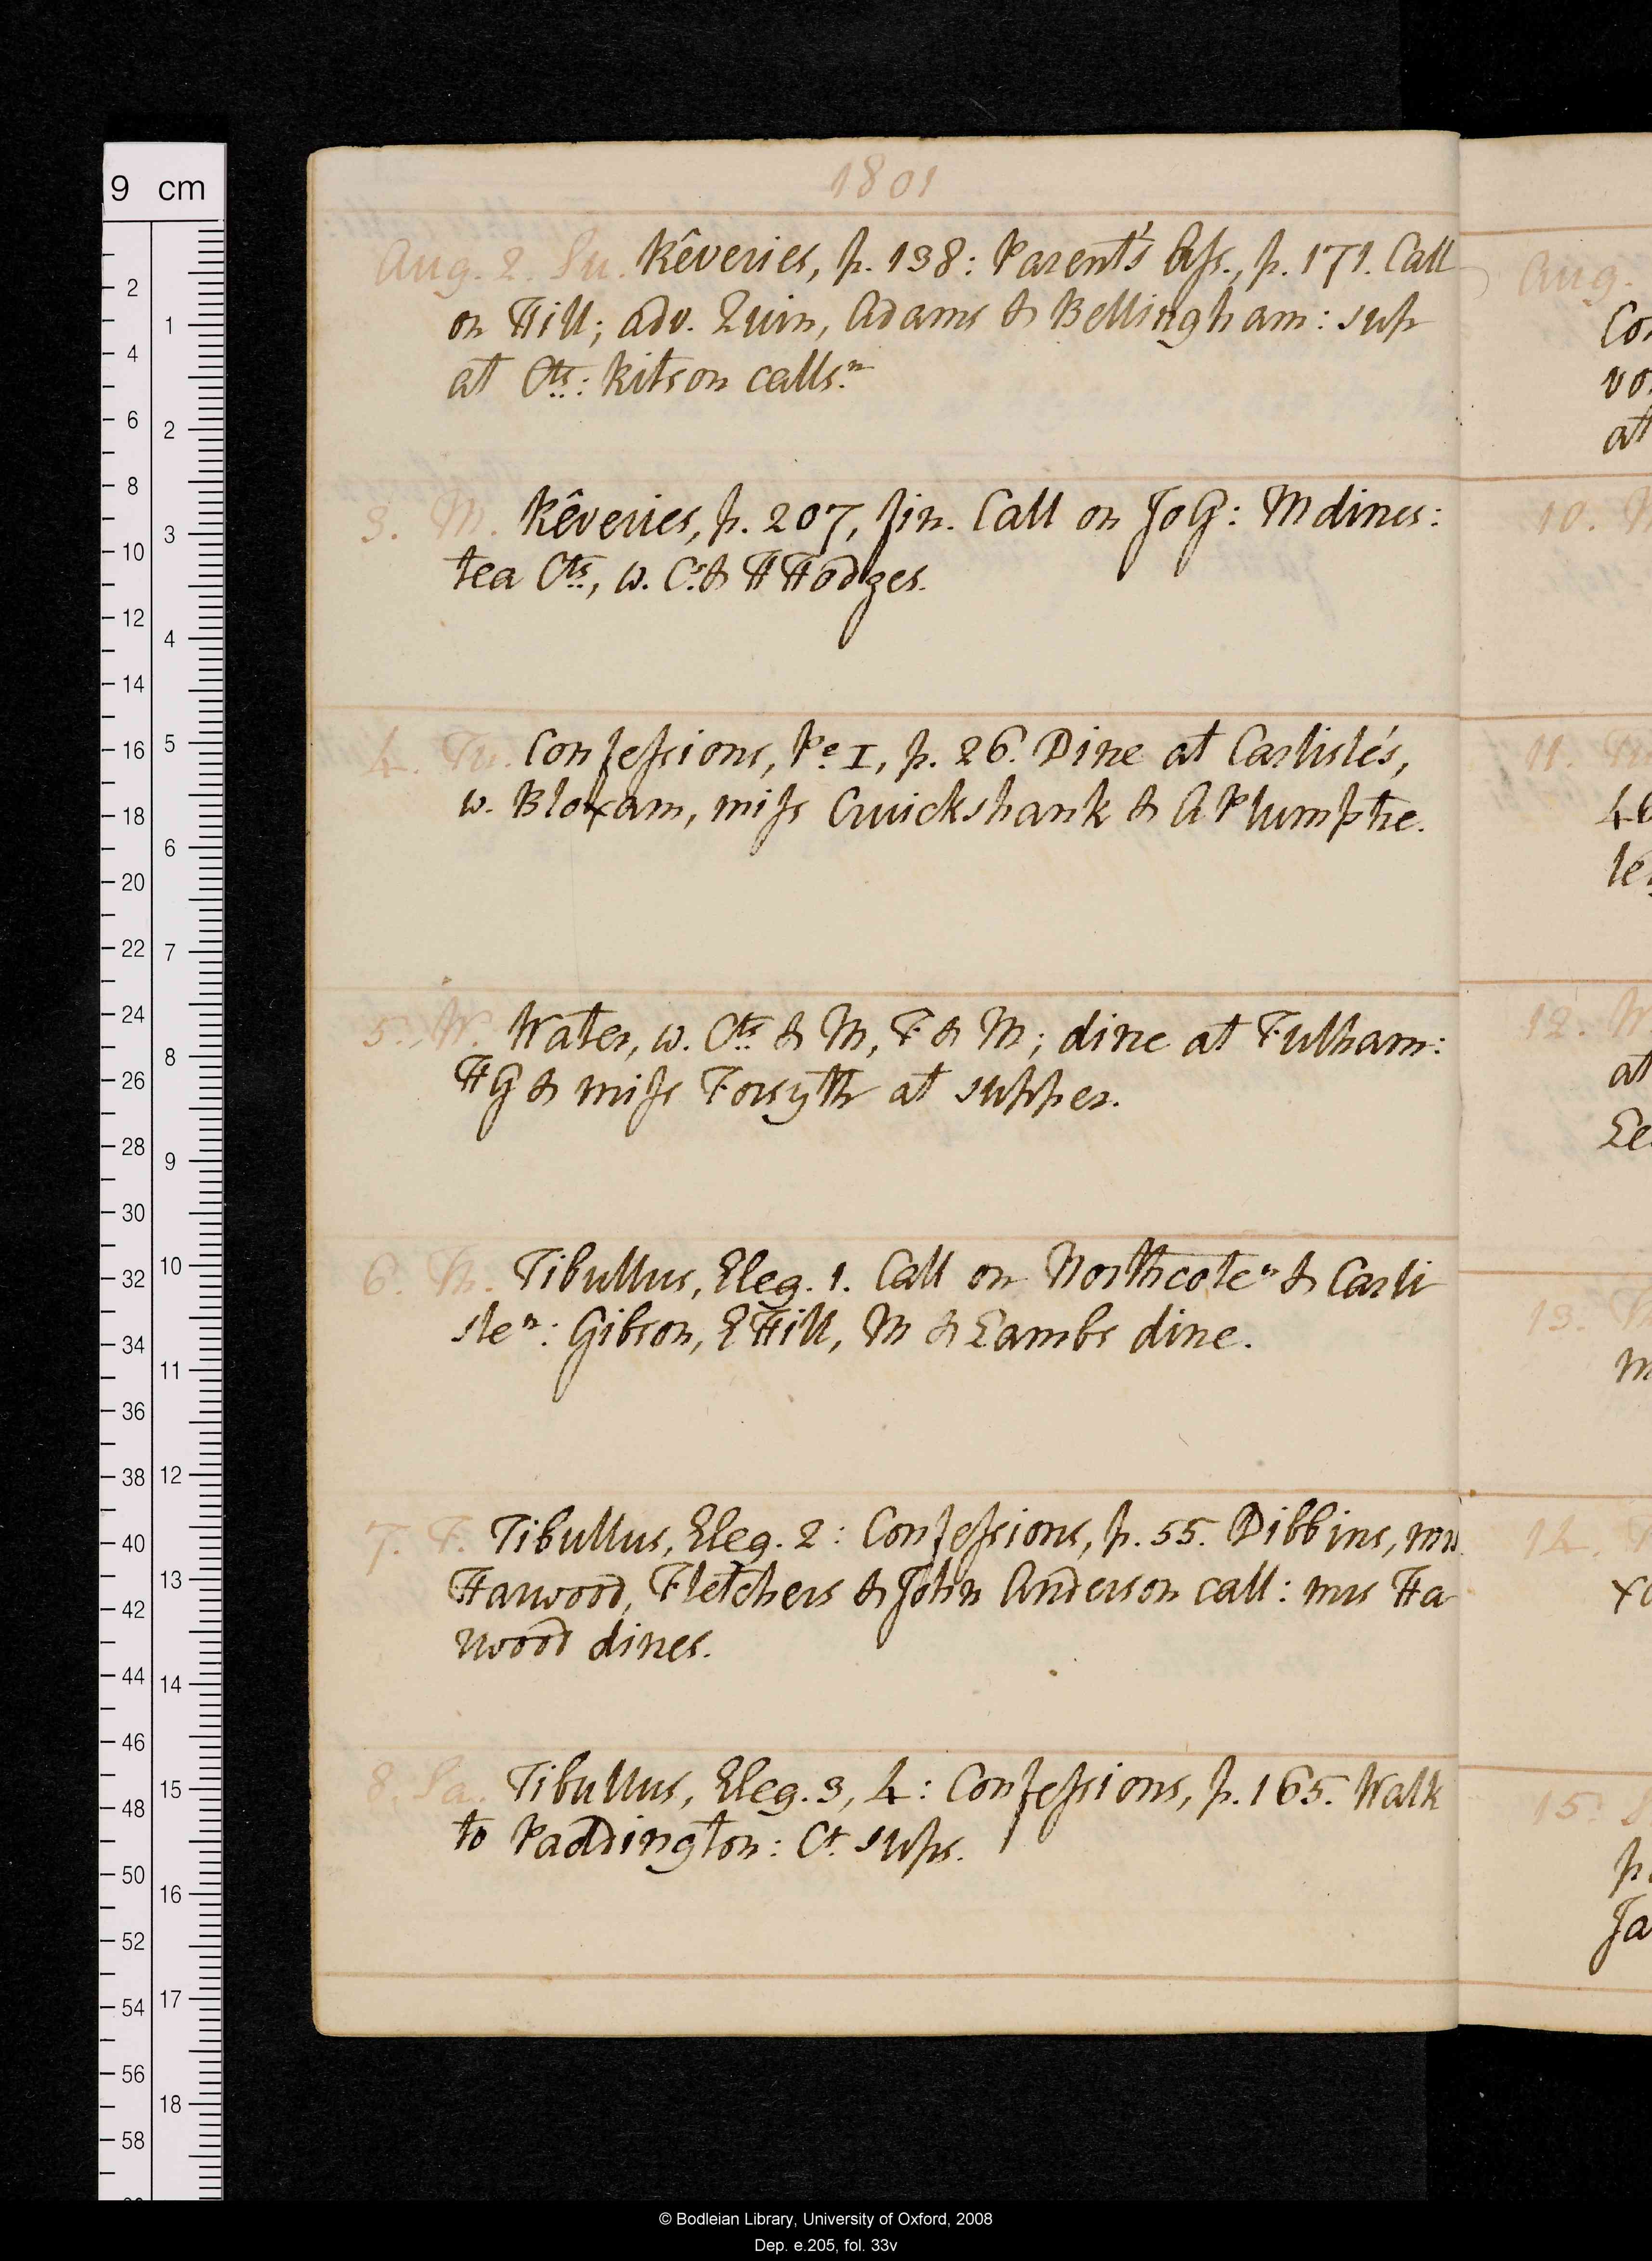 1801
Aug. 2. Su. Rêveries, p. 138: Parent's Ass., p. 171. Call
on Hill; adv. Quin, Adams & Bellingham: sup
at Cts: Kitson calls.n
3. M. Rêveries, p. 207, fin. Call on JoG: M dines:
tea Cts, w. Cs & H Hodges.
4. Tu. Confessions, Pe I, p. 26. Dine at Carlisle's,
w. Bloxam, miss Cruickshank & A Plumptre.
5. W. Water, w. Cts & M, F & M; dine at Fulham:
HG & miss Forsyth at supper.
6. Th. Tibullus, Eleg. 1. Call on Northcoten & Carli
slen: Gibson, E Hill, M & Lambs dine.
7. F. Tibullus, Eleg. 2: Confessions, p. 55. Dibbins, mrs
Harwood, Fletchers & John Anderson call: mrs Ha
rwood dines.
8. Sa. Tibullus, Eleg. 3, 4: Confessions, p. 165. Walk
to Paddington: Ct sups.
Aug.
Co
vo
at
10.
11. Tu
46
le
12.
at
Le
13.
m
14.
xa
15.
p.
Ja
9 cm
2 4 6 8 10 12 14 16 18 20 22 24 26 28 30 32 34 36 38 40 42 44 46 48 50 52 54 56 58
1 2 3 4 5 6 7 8 9 10 11 12 13 14 15 16 17 18
© Bodleian Library, University of Oxford, 2008
Dep. e.205, fol. 33v